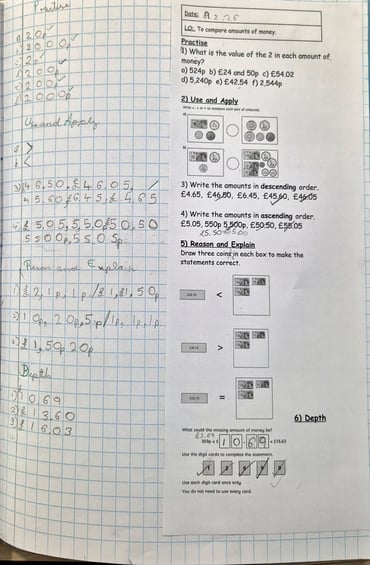 Practise
a) 20p
b) 2000p
c) 2p
d) 200p
e) 200p
f) 2000p
Use and Apply
a >
b <
3) £46.50, £46.05,
45.60 £6.45, £4.65
4) £5.05, 550p £50.50
5500p, 55.05p
Reason and Explain
1) £2, 1p, 1p / £1, £1, 50p
2) 10p, 20p, 5p / 1p, 1p, 1p
£1, 50p 20p
Depth
1) 10.69
2) £13.60
3) £16.03
Date:
LO: To compare amounts of money.
Practise
1) What is the value of the 2 in each amount of
money?
a) 524p b) £24 and 50p c) £54.02
d) 5,240p e) £42.54 f) 2,544p
2) Use and Apply
a)
b)
3) Write the amounts in descending order.
£4.65, £46.50, £6.45, £45.60, £46.05
4) Write the amounts in ascending order.
£5.05, 550p 5,500p, £50.50, £55.05
5) Reason and Explain
Draw three coins in each box to make the
statements correct.
<
>
=
6) Depth
What could the missing amount of money be?
£3.69
369p + £ 10.69 < £16.63
Use the digit cards to complete the statements.
Use each digit card once only.
You do not need to use every card.